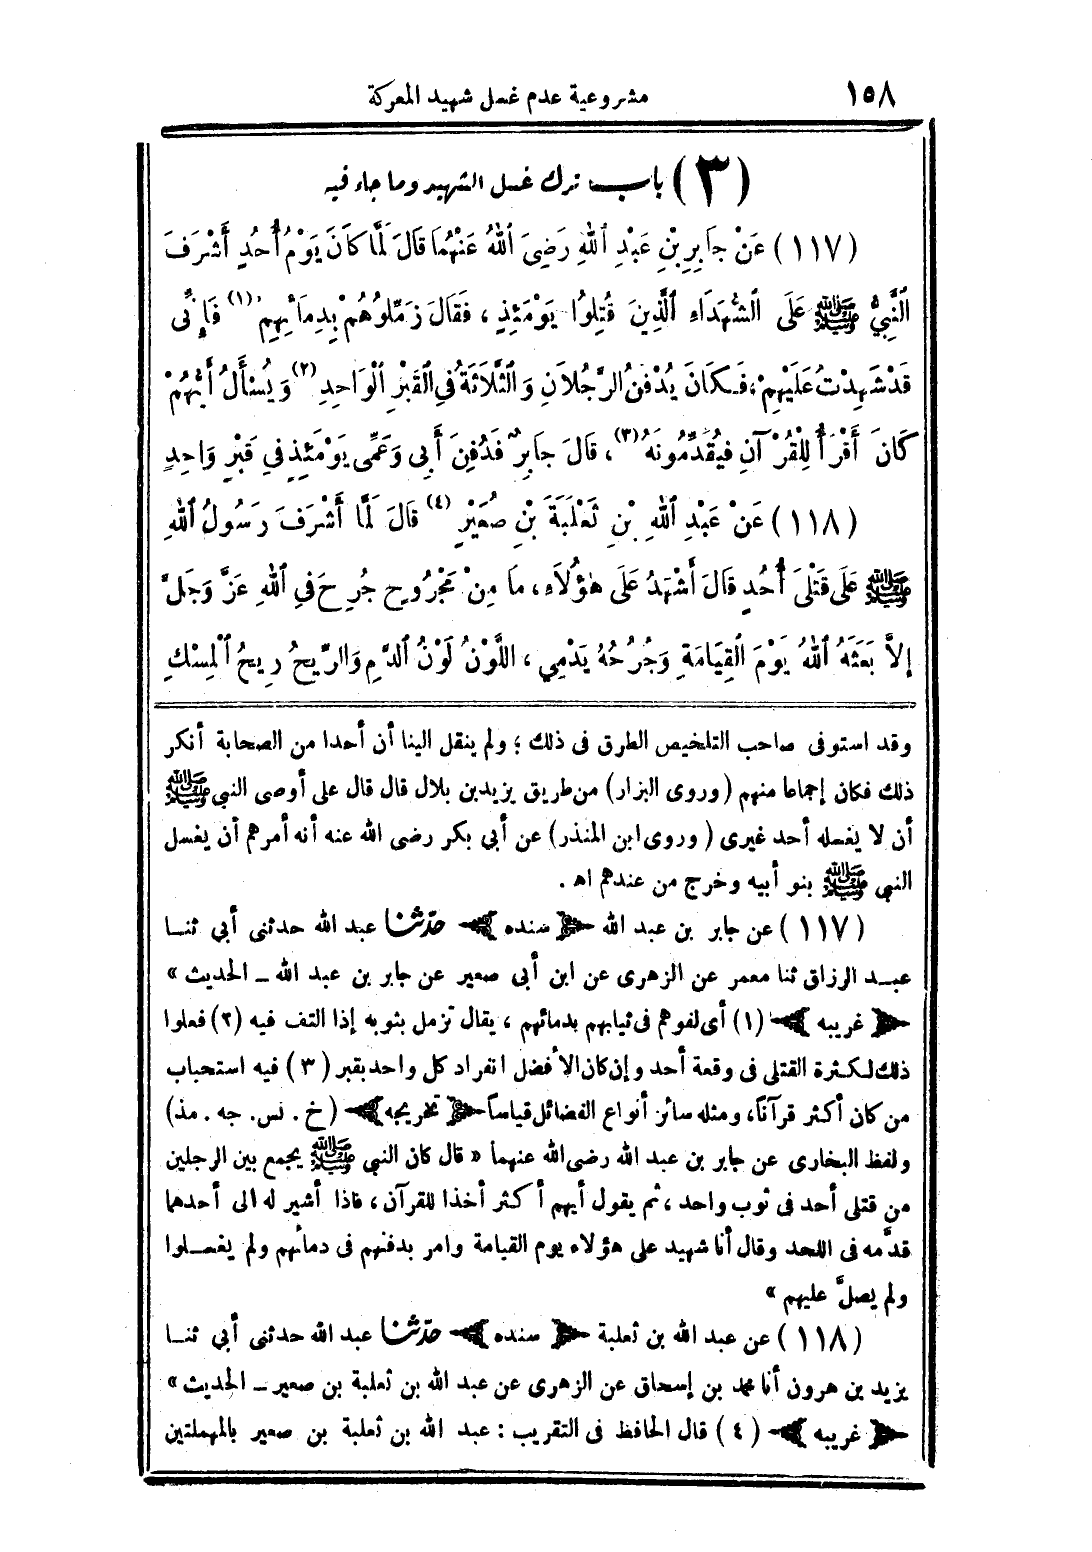 ١٥٨ مشروعية عدم غسل شهيد المعركة
(٣) باب ترك غسل الشهيد وما جاء فيه
(١١٧) عَنْ جَابِرِ بْنِ عَبْدِ اللهِ رَضِيَ اللهُ عَنْهُمَا قَالَ لَمَّا كَانَ يَوْمُ أُحُدٍ أَشْرَفَ
النَّبِيُّ ﷺ عَلَى الشُّهَدَاءِ الَّذِينَ قُتِلُوا يَوْمَئِذٍ ، فَقَالَ زَمِّلُوهُمْ بِدِمَائِهِمْ (١) فَإِنِّى
قَدْ شَهِدْتُ عَلَيْهِمْ، فَكَانَ يُدْفَنُ الرَّجُلَانِ وَالثَّلَاثَةُ فِي الْقَبْرِ الْوَاحِدِ (٢) وَيُسْأَلُ أَيُّهُمْ
كَانَ أَقْرَأُ لِلْقُرْآنِ فَيُقَدِّمُونَهُ (٣)، قَالَ جَابِرٌ فَدُفِنَ أَبِى وَعَمِّى يَوْمَئِذٍ فِي قَبْرٍ وَاحِدٍ
(١١٨) عَنْ عَبْدِ اللهِ بْنِ ثَعْلَبَةَ بْنِ صُعَيْرٍ (٤) قَالَ لَمَّا أَشْرَفَ رَسُولُ اللهِ
ﷺ عَلَى قَتْلَى أُحُدٍ قَالَ أَشْهَدُ عَلَى هٰؤُلَاءِ، مَا مِنْ مَجْرُوحٍ جُرِحَ فِي اللهِ عَزَّ وَجَلَّ
إِلاَّ بَعَثَهُ اللهُ يَوْمَ الْقِيَامَةِ وَجُرْحُهُ يَدْمِي ، اللَّوْنُ لَوْنُ الدَّمِ وَالرِّيحُ رِيحُ الْمِسْكِ
وقد استوفى صاحب التلخيص الطرق فى ذلك ؛ ولم ينقل الينا أن أحدا من الصحابة أنكر
ذلك فكان إجماعا منهم (وروى البزار) من طريق يزيد بن بلال قال قال على أوصى النبي ﷺ
أن لا يغسله أحد غيرى ( وروى ابن المنذر) عن أبي بكر رضى الله عنه أنه أمرهم أن يغسل
النبي ﷺ بنو أبيه وخرج من عندهم اه .
(١١٧) عن جابر بن عبد الله ﴿ سنده ﴾ حدّثنا عبد الله حدثنى أبي ثنـا
عبـد الرزاق ثنا معمر عن الزهرى عن ابن أبى صعير عن جابر بن عبد الله ــ الحديث »
﴿ غريبه ﴾ (١) أى لفوهم فى ثيابهم بدمائهم ، يقال تزمل بثوبه إذا التف فيه (٢) فعلوا
ذلك لكثرة القتلى فى وقعة أحد وإن كان الأفضل انفراد كل واحد بقبر (٣) فيه استحباب
من كان أكثر قرآناً، ومثله سائر أنواع الفضائل قياساً ﴿ تخريجه ﴾ (خ . نس. جه . مذ)
ولفظ البخارى عن جابر بن عبد الله رضى الله عنهما « قال كان النبي ﷺ يجمع بين الرجلين
من قتلى أحد فى ثوب واحد ، ثم يقول أيهم أكثر أخذا للقرآن ، فاذا أشير له الى أحدهما
قدَّمه فى اللحد وقال أنا شهيد على هؤلاء يوم القيامة وامر بدفنهم فى دمائهم ولم يغسـلوا
ولم يصلَّ عليهم »
(١١٨) عن عبد الله بن ثعلبة ﴿ سنده ﴾ حدّثنا عبد الله حدثنى أبي ثنـا
يزيد بن هرون أنا محمد بن إسحاق عن الزهرى عن عبد الله بن ثعلبة بن صعير ــ الحديث »
﴿ غريبه ﴾ (٤) قال الحافظ فى التقريب : عبد الله بن ثعلبة بن صعير بالمهملتين